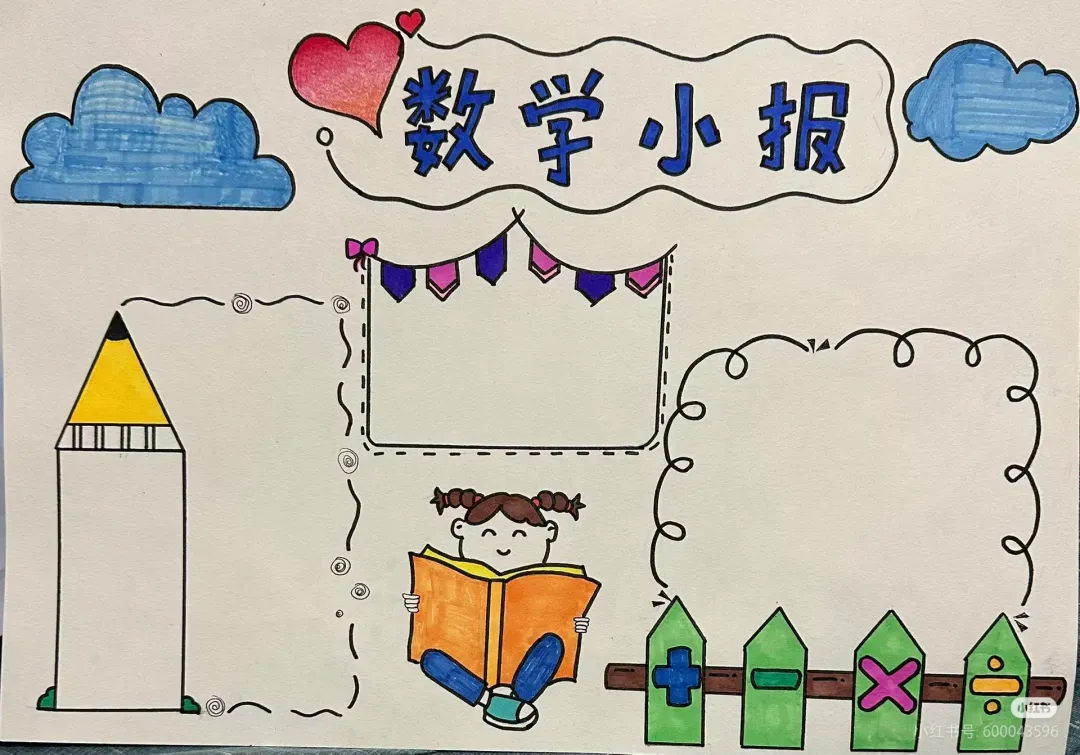 数学小报
+ - × ÷
小红书
小红书号: 600043596